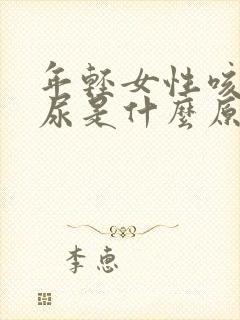 年轻女性咳
尿是什麼原
李惠